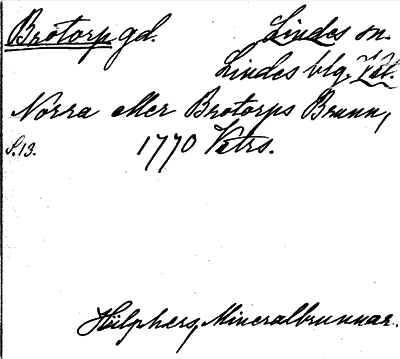 Brotorp gd. Lindes sn.
Lindes blg. Vstl.
Norra eller Brotorps Brunn,
S.13. 1770 Vstrs.
Hülphers, Mineralbrunnar.